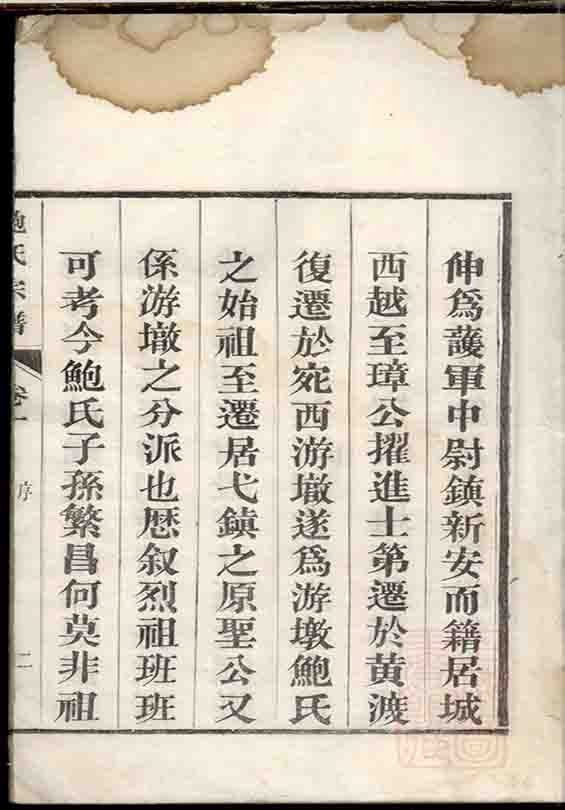 伸爲護軍中尉鎮新安而籍居城
西越至璋公擢進士第遷於黃渡
復遷於宛西游墩遂爲游墩鮑氏
之始祖至遷居弋鎮之原聖公又
係游墩之分派也歷叙烈祖班班
可考今鮑氏子孫繁昌何莫非祖
鮑氏宗譜
卷一
序
二